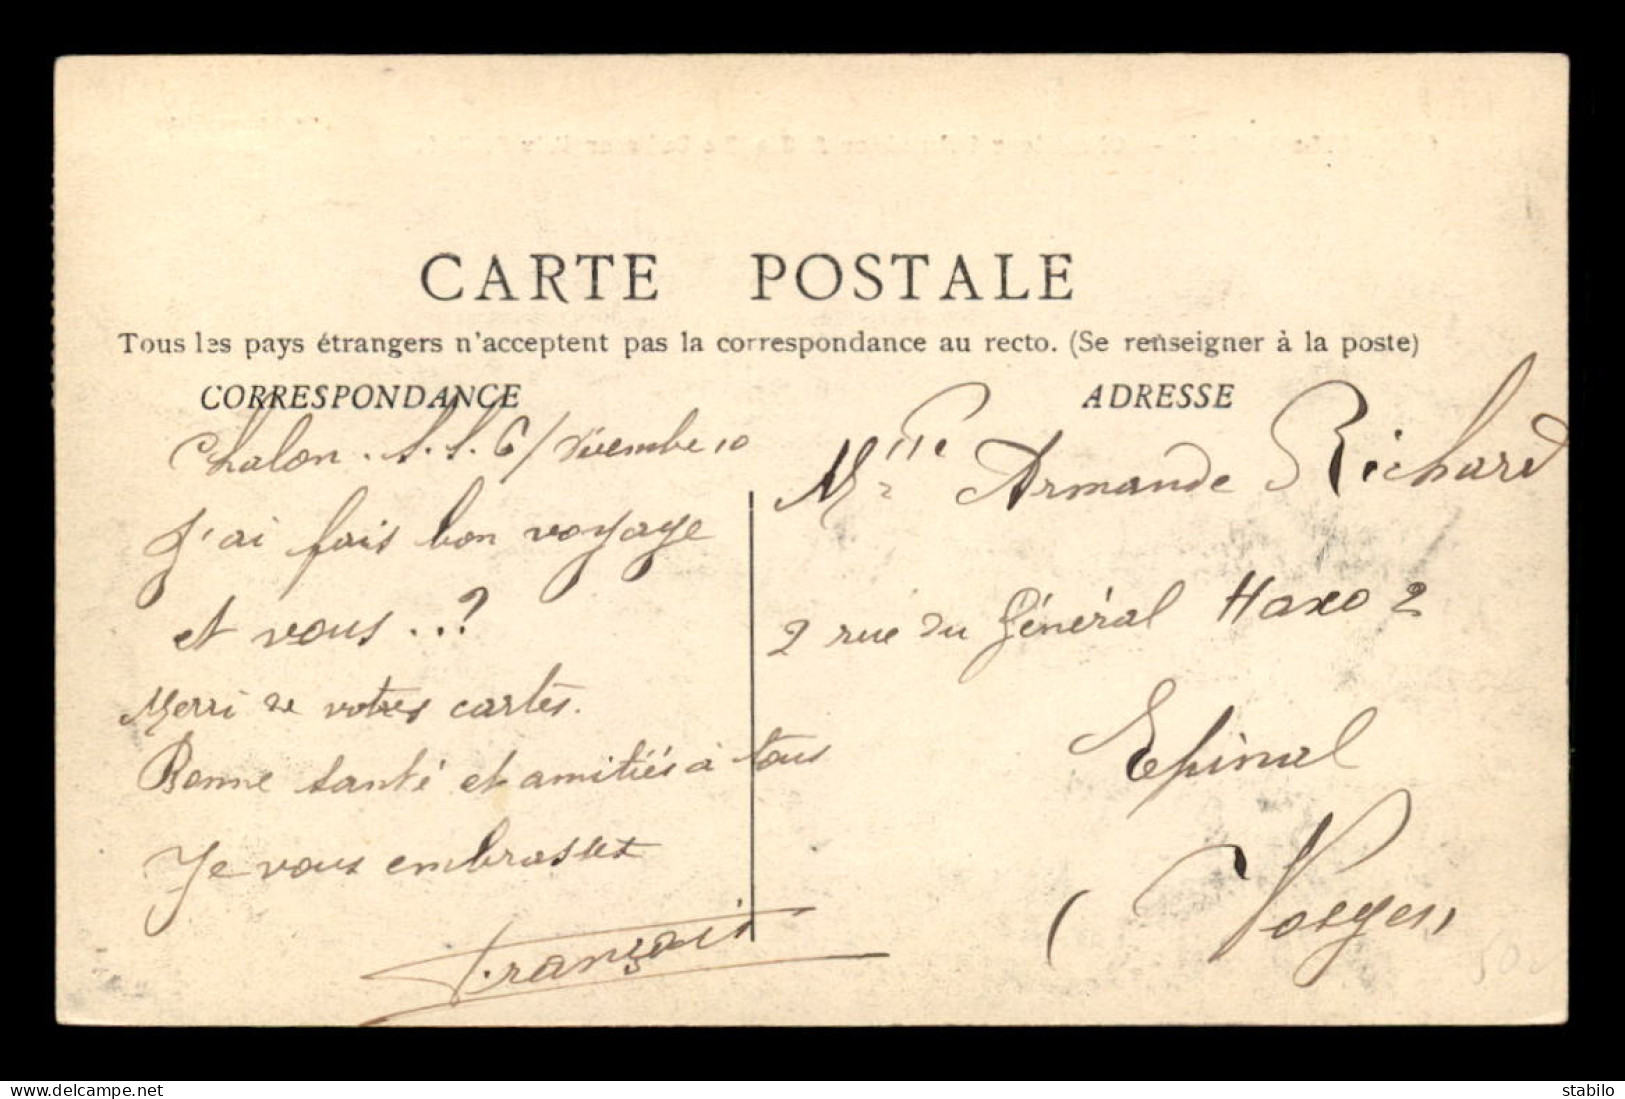 CARTE POSTALE
Tous les pays étrangers n'acceptent pas la correspondance au recto. (Se renseigner à la poste)
CORRESPONDANCE
Chalon . S. S. 6/ 10
J'ai fais bon voyage
et vous ..?
Merri de votres cartes.
Bonne santé et amitiés à tous
Je vous embrasse
François
ADRESSE
Mlle Armande Richard
2 rue du Général Haxo 2
Epinal
(Vosges)
50
www.delcampe.net
stabilo